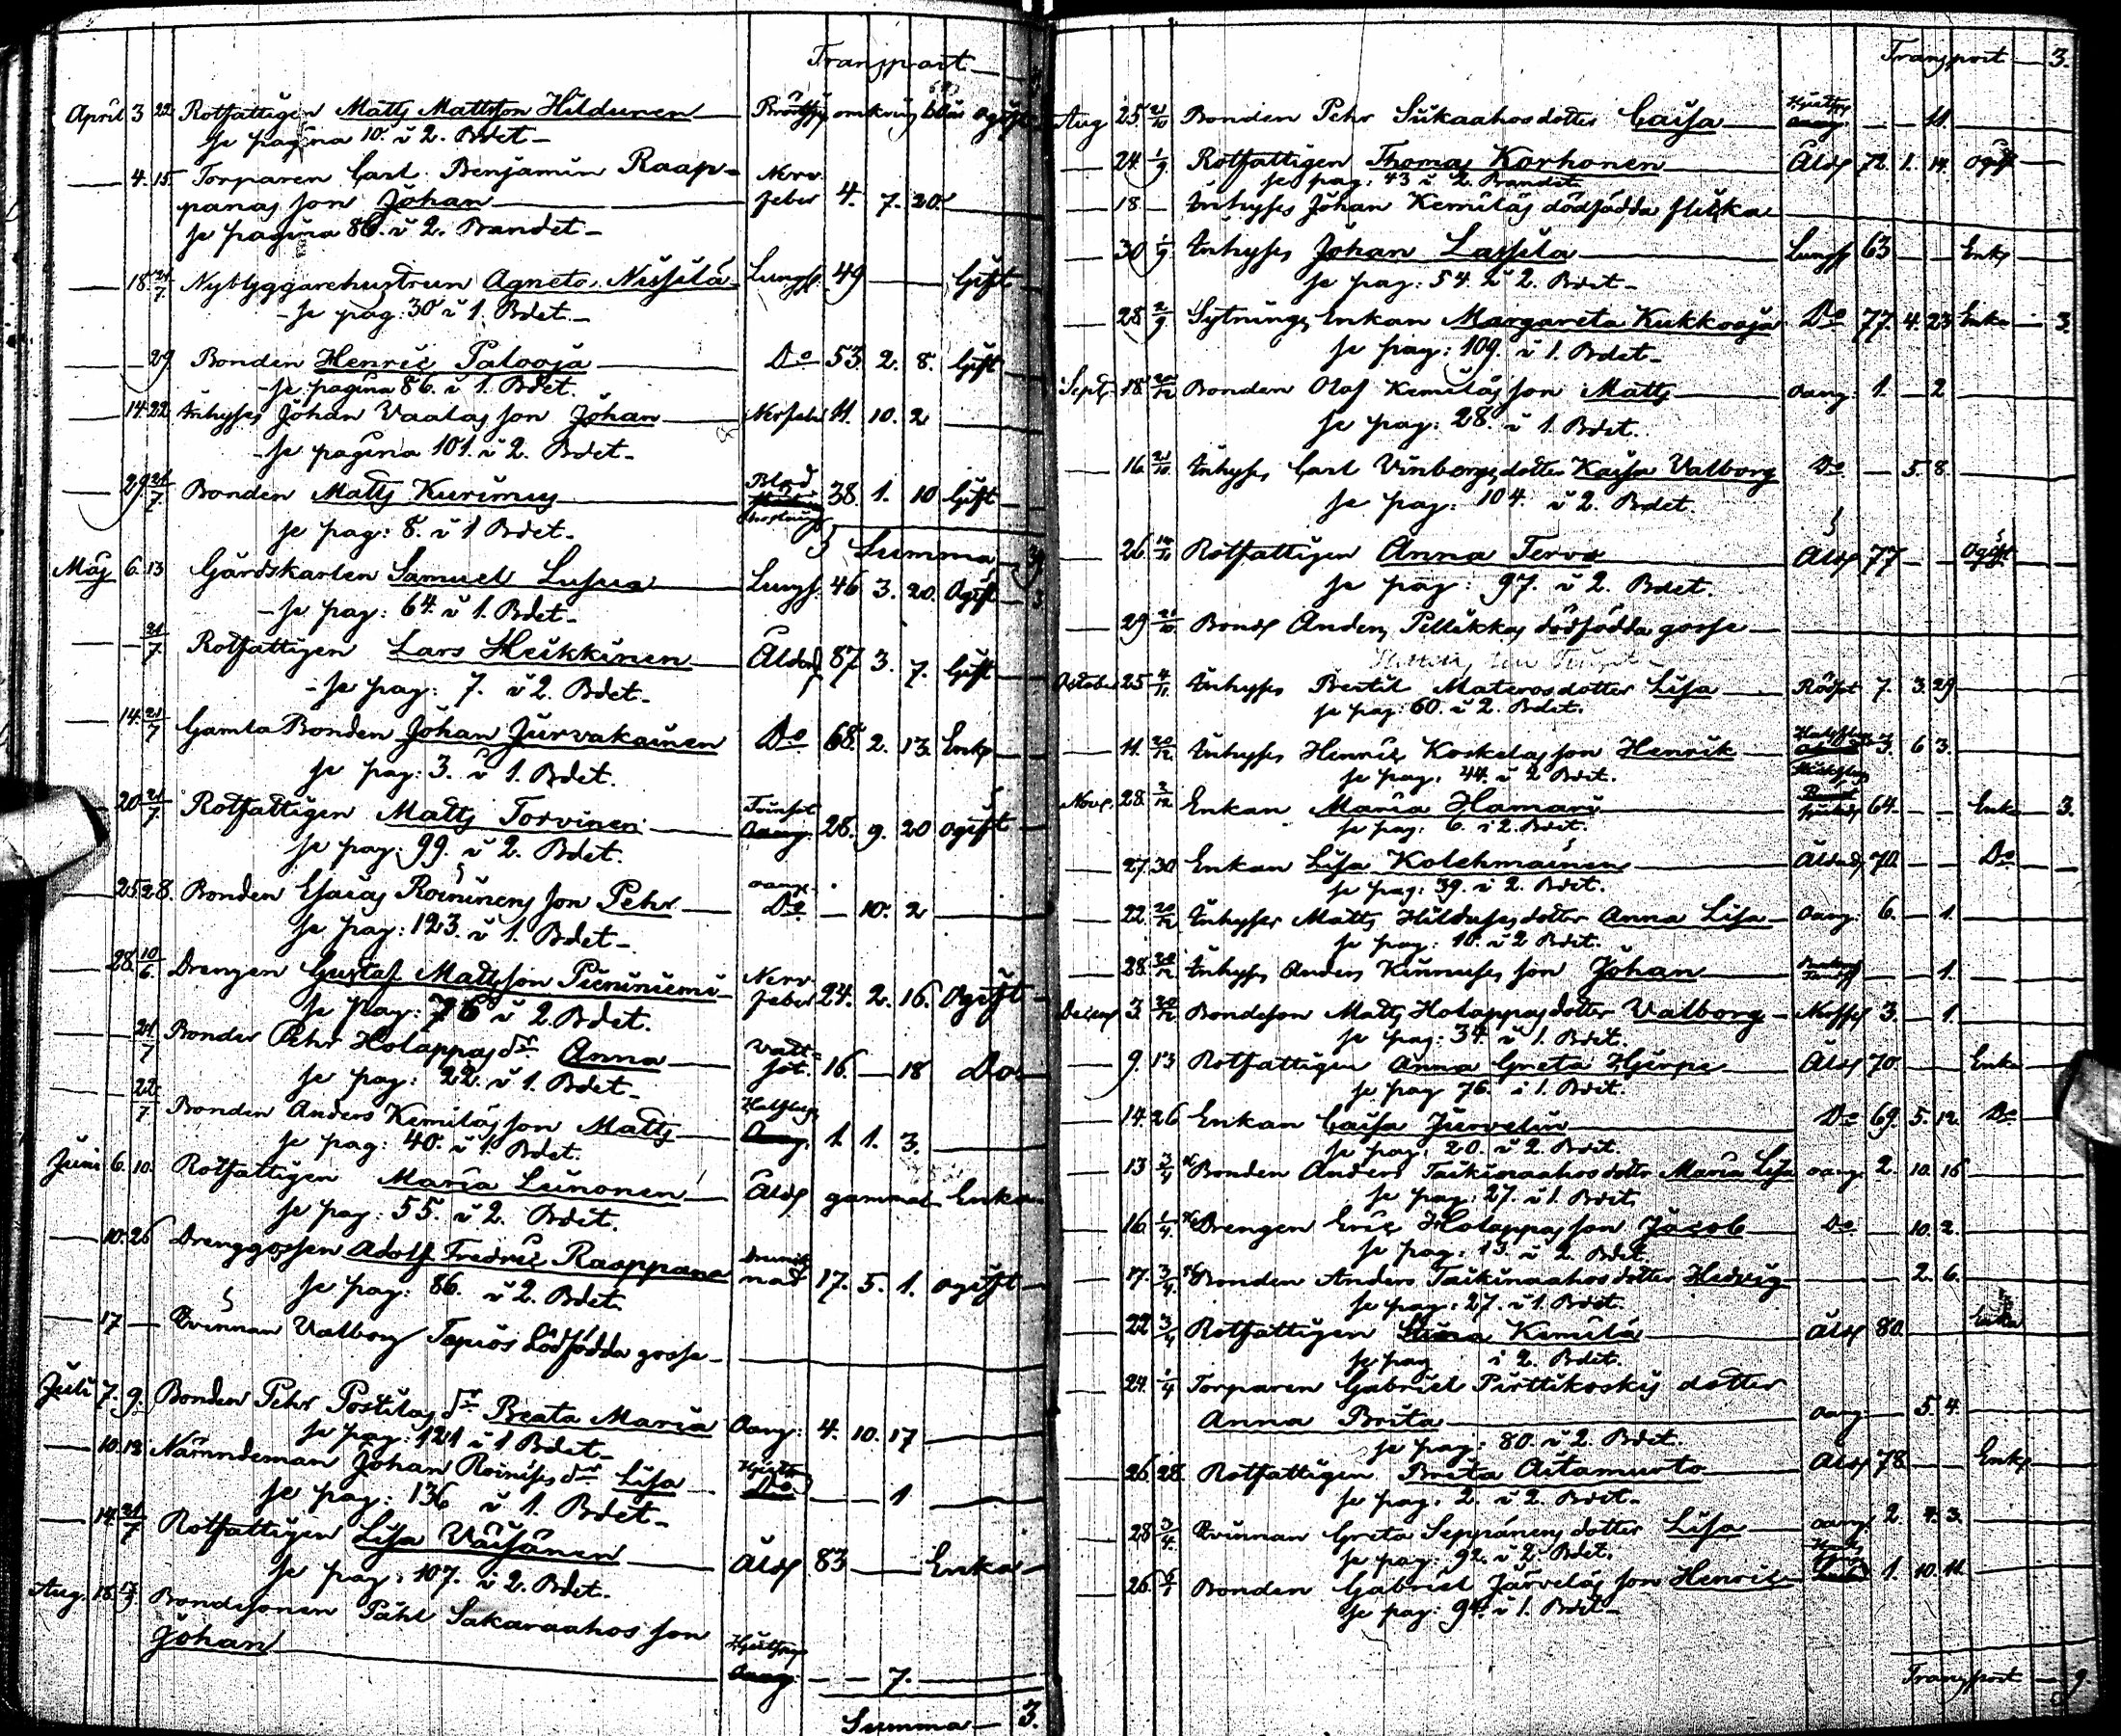 Transport
April 3 22 Rotfattigen Matts Mattsson Hildunen omkring ogift
Se pagina 10. i 2. Bdet
4. 15. Torparen Carl Benjamin Raap- Nerv
panas son Johan feber 4. 7. 20.
se pagina 86. i 2. Bandet
18 21/7 Nybyggarehustrun Agneta Nissilä Lungs. 49 Gift
se pag: 30 i 1. Bdet.
29 Bonden Henric Palooja Do 53. 2. 8. Gift
se pagina 86. i 1. Bdet.
14. 22 Inhyses Johan Vaalas son Johan Nerfeb 11. 10. 2
Se pagina 101. i 2. Bdet.
29 21/7 Bonden Matts Kurimus Blod 38. 1. 10 Gift
se pag: 8. i 1 Bdet.
Summa
Maj 6. 13 Gårdskarlen Samuel Lusua Lungs. 46 3. 20. Ogift
se pag: 64. i 1. Bdet.
21/7 Rotfattigen Lars Heikkinen Ålder 87 3. 7. Gift
se pag: 7. i 2. Bdet.
14. 21/7 Gamla Bonden Johan Jurvakainen Do 68. 2. 13. Enkl
se pag: 3. i 1. Bdet.
20 21/7 Rotfattigen Matts Torvinen 28. 9. 20 ogift
Se pag: 99. i 2. Bdet.
25 28. Bonden Esaias Roininens son Pehr Do 10. 2
Se pag: 123. i 1. Bdet.
28. 10/6 Drengen Gustaf Mattsson Pieniniemi Nerv feber 24. 2. 16. Ogift
se pag: 76 i 2. Bdet.
21/7 Bonden Pehr Holappas dr Anna Vatt- sot. 16. 18 Do
se pag: 22. i 1. Bdet.
22/7 Bonden Anders Kemiläs son Matts 1. 1. 3.
se pag: 40. i 1. Bdet.
Juni 6. 10. Rotfattigen Maria Leinonen Åld gammal Enka
se pag: 55. i 2. Bdet.
10. 26 Drenggossen Adolf Fredric Raappana Drunk nad 17. 5. 1. ogift
se pag: 86. i 2. Bdet.
17 Qvinnan Valborg Tapios dödfödda gosse
Juli 7. 9. Bonden Pehr Postilas dr Beata Maria Oang: 4. 10. 17
se pag: 121 i 1 Bdet
10. 13 Nämndeman Johan Roinises dr Lisa 1
se pag: 136 i 1. Bdet.
14. 21/7 Rotfattigen Lisa Väisänen Åld 83 Enka
Se pag: 107. i 2. Bdet.
Aug. 18. Bondesonen Påhl Sakaraahos son
Johan 7.
Summa 3.
Transport 3.
Aug 25. 21/10 Bonden Pehr Siikaahos dotter Caisa 11.
24 1/9 Rotfattigen Thomas Korhonen Åld 72. 1. 14. Ogift
se pag: 43 i 2. Bandet
18 Inhyses Johan Kemiläs dödfödda flicka
30 1/9 Inhyses Johan Lassila Lungs 63 Enkl
se pag: 54. i 2. Bdet
28 2/9 Sytnings Enkan Margareta Kukkooja Do 77. 4. 23 Enka 3.
Se pag: 109. i 1. Bdet
Sept. 18. 20/12 Bonden Olof Kemiläs son Matts oang. 1. 2
se pag: 28. i 1. Bdet.
16. 21/10 Inhyses Carl Vinbergs dotter Kaisa Valborg Do 5 8.
se pag: 104. i 2. Bdet.
26. Rotfattigen Anna Tervo Åld 77 Ogift
se pag: 97. i 2. Bdet.
29 21/10 Bonds Anders Pellikkas dödfödda gosse
October 25 4/11 Inhyses Bertil Materos dotter Lisa Rödsot 7. 3. 29
se pag: 60. i 2. Bdet.
11. 20/12 Inhyses Henric Koskelas son Henrik 3. 6 3.
se pag: 44. i 2 Bdet.
Nov. 28. 2/12 Enkan Maria Hamari 64. Enka 3.
se pag: 6. i 2. Bdet.
27. 30 Enkan Lisa Kolehmainen Ålder 70. Do
se pag: 39. i 2. Bdet.
22. 20/12 Inhyses Matts Hilduses dotter Anna Lisa Oang: 6. 1.
se pag: 10. i 2 Bdet.
28. 20/12 Inhyses Anders Kinnuses son Johan 1.
Decemb 3. 20/12 Bondeson Matts Holappas dotter Valborg 3. 1.
se pag: 34. i 1. Bdet.
9. 13 Rotfattigen Anna Greta Hjerpe Åld 70. Enka
se pag 76. i 1. Bdet.
14. 26 Enkan Caisa Jurvelin Do 69. 5. 12. Do
se pag: 20. i 2. Bdet.
13 3/4 Bonden Anders Taikinaahos dotter Maria Lisa oang. 2. 10. 16
se pag: 27. i 1. Bdet.
16. 1/4 Drengen Eric Holappas son Jacob Do 10. 2.
se pag: 13. i 2. Bdet.
17. 3/4 Bonden Anders Taikinaahos dotter Hedvig 2. 6.
se pag: 27. i 1. Bdet.
22 3/4 Rotfattigen Kemilä Åld 80. Enka
se pag i 2. Bdet.
24. 1/4 Torparen Gabriel Pirttikoskis dotter
Anna Brita oang. 5. 4.
se pag: 80. i 2. Bdet.
26. 28. Rotfattigen Brita Aitamurto Åld 78 Enkl
se pag. 2. i 2. Bdet.
28 3/4 Qvinnan Greta Seppänens dotter Lisa oang. 2. 4. 3.
se pag: 92. i 2. Bdet.
26. Bonden Gabriel Järveläs son Henric 1. 10. 11.
se pag: 94. i 1. Bdet
Transport 9.